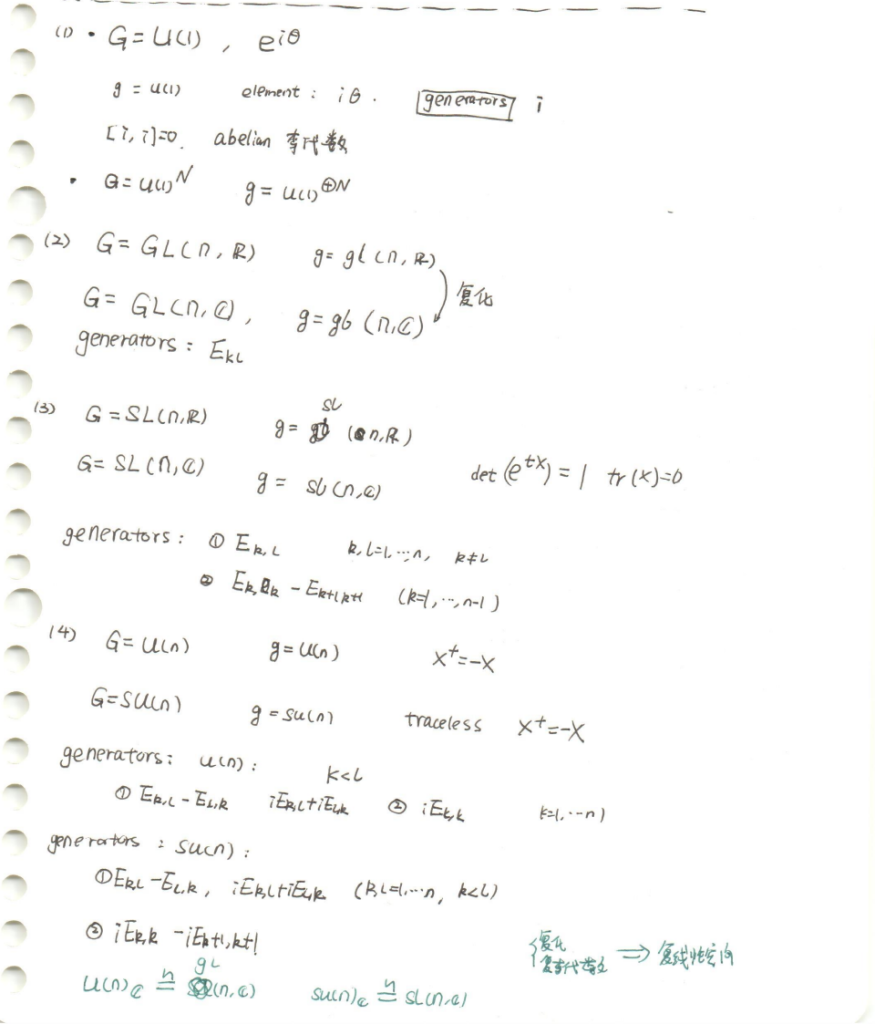 (1) · G = U(1) , e^{iθ}
g = u(1) element : iθ. generators i
[i, i]=0. abelian 李代数
· G = U(1)^N g = u(1)^{⊕N}
(2) G = GL(n, ℝ) g = gl(n, ℝ)
复化
G = GL(n, ℂ), g = gl(n, ℂ)
generators : E_{kl}
(3) G = SL(n, ℝ) g = sl(n, ℝ)
G = SL(n, ℂ) g = sl(n, ℂ) det(e^{tX}) = 1 tr(X)=0
generators : ① E_{k,l} k,l=1,…,n, k≠l
② E_{k,k} - E_{k+1,k+1} (k=1,…,n-1)
(4) G = U(n) g = u(n) X^†=-X
G = SU(n) g = su(n) traceless X^†=-X
generators : u(n) : k<l
① E_{k,l} - E_{l,k} iE_{k,l}+iE_{l,k} ② iE_{k,k} k=1,…n)
generators : su(n) :
① E_{k,l} - E_{l,k}, iE_{k,l}+iE_{l,k} (k,l=1,…n, k<l)
② iE_{k,k} - iE_{k+1,k+1}
复化
复李代数 ⇒ 复线性空间
u(n)_ℂ ≅ gl(n,ℂ) su(n)_ℂ ≅ sl(n,ℂ)